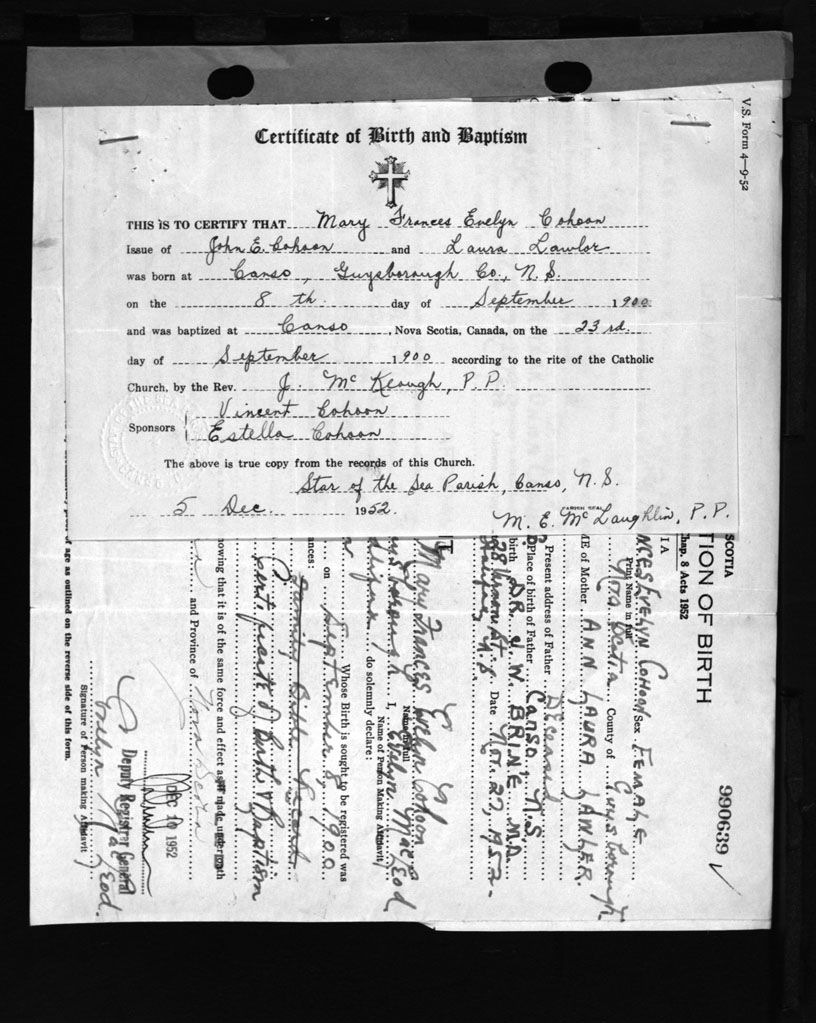 V.S. Form 4—9-52
Certificate of Birth and Baptism
THIS IS TO CERTIFY THAT Mary Frances Evelyn Cohoon
Issue of John E. Cohoon and Laura Lawlor
was born at Canso, Guysborough Co., N.S.
on the 8th day of September 1900
and was baptized at Canso, Nova Scotia, Canada, on the 23rd.
day of September 1900 according to the rite of the Catholic
Church, by the Rev. J. McKeough, P.P.
Sponsors Vincent Cohoon
Estella Cohoon
The above is true copy from the records of this Church.
Star of the Sea Parish, Canso, N.S.
5 Dec. 1952.
M. E. McLaughlin, P.P.
990639
TION OF BIRTH
SCOTIA
hap. 8 Acts 1952
I A
NCES EVELYN COHOON Sex FEMALE
Print Name in full
Nova Scotia County of Guysborough.
ME of Mother ANN LAURA LAWLER.
Present address of Father Deceased
Place of birth of Father Canso, N.S.
birth DR. J. W. BRINE M.D.
28 St. Date Nov. 27, 1952.
Halifax N.S
Mary Frances Evelyn Cohoon
Name in full
I, Evelyn MacLeod
Name of Person Making Affidavit
do solemnly declare:
Whose Birth is sought to be registered was
on September 8, 1900
ances:
Family Bible Record
cate of Birth & Baptism
nowing that it is of the same force and effect as if made under oath
and Province of Nova Scotia
DEC 10 1952
Deputy Registrar General
Evelyn MacLeod.
Signature of Person making Affidavit
of age as outlined on the reverse side of this form.